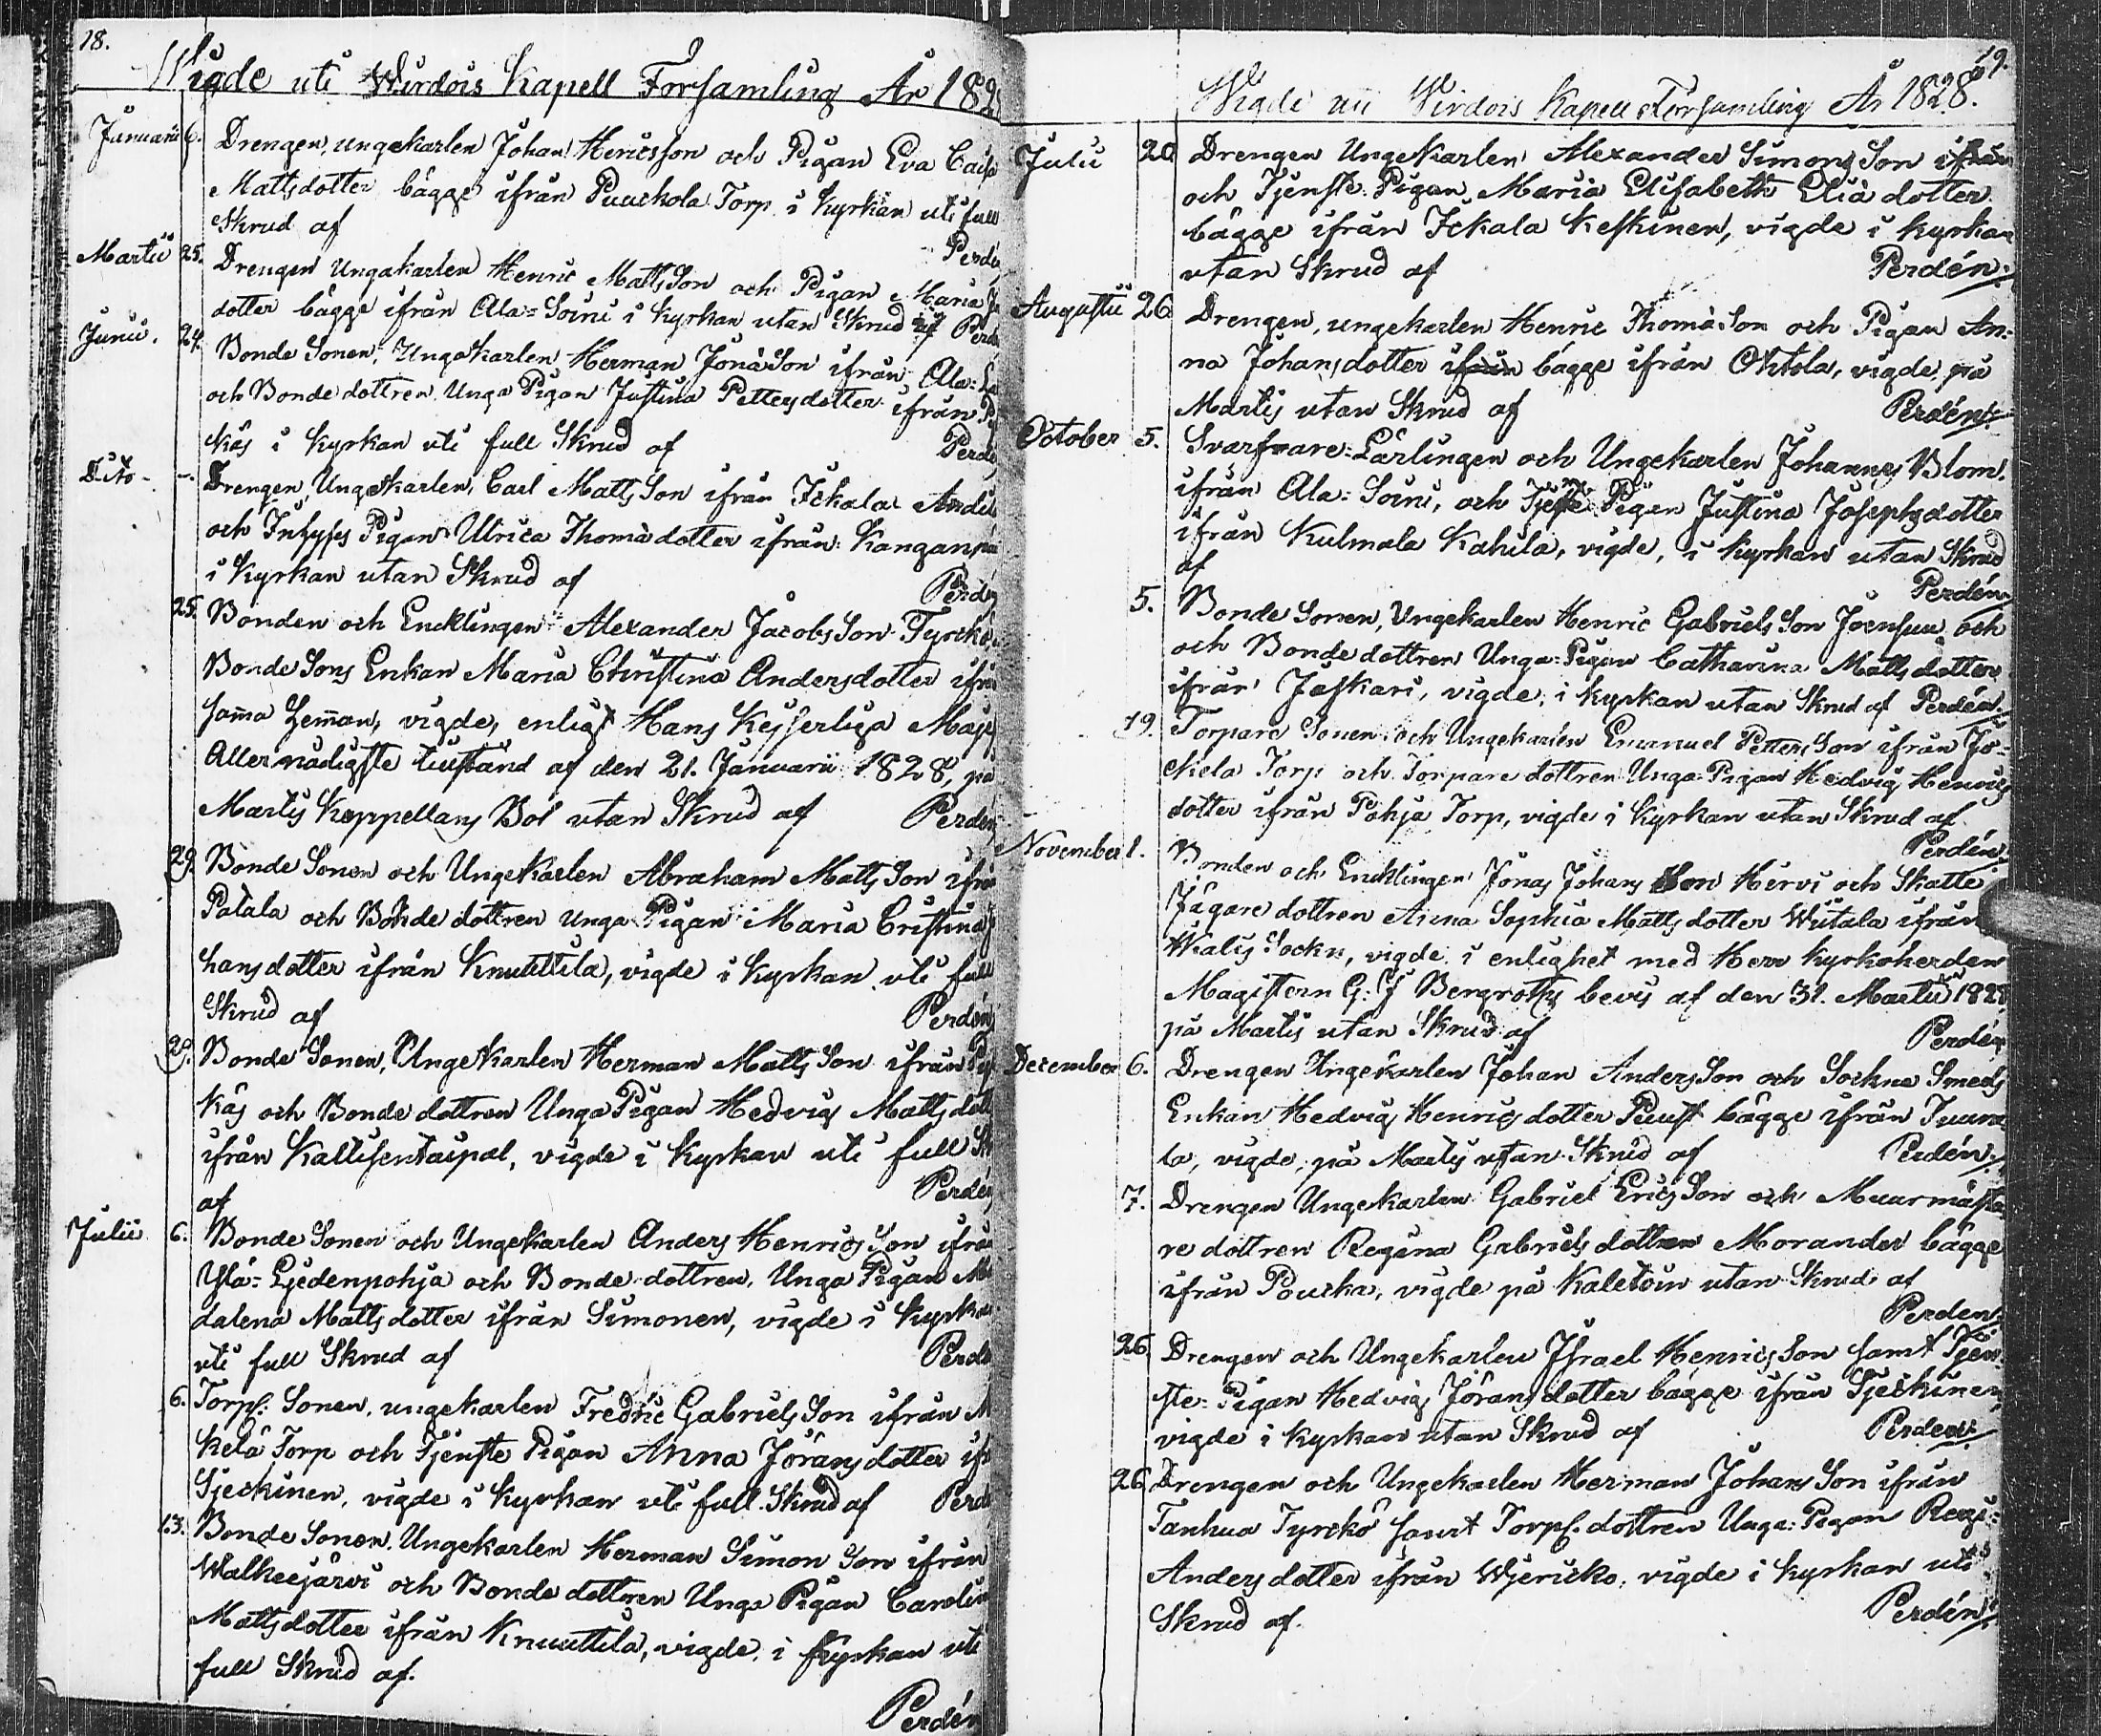 18.
Wigde uti Wirdois Kapell Forsamling År 182
Januarii 6. Drengen, ungekarlen Johan Hericsson och Pigan Eva Caisa
Mattsdotter bägge ifrån Puuckola Torp i Kyrkan uti full
Skrud af Perdé
Martii 25. Drengen Ungakarlen Henric MattsSon och Pigan Maria
dotter bägge ifrån Ala=Soini i Kyrkan utan Skrud af Perdé
Junii. 24. Bonde Sonen, Ungakarlen Herman JonäSon ifrån Ala=
och Bonde dottren Unga Pigan Justina Pettersdotter ifrån
käs i Kyrkan uti full Skrud af Perdé
Dito - -. Drengen, Ungekarlen, Carl MattsSon ifrån Ickala
och Inhyses Pigan Ulrica Thomädotter ifrån Kangan
i Kyrkan utan Skrud af Perdé
25. Bonden och Encklingen Alexander JacobsSon Tyrckö
Bonde Sons Enkan Maria Christina Andersdotter ifrån
sam̄a Hem̄an, vigde, enligt Hans Kejserliga Maj
Allernådigste tillstånd af den 21. Januarii 1828, på
Martis Kappellans Bol utan Skrud af Perdén
29. Bonde Sonen och UngeKarlen Abraham MattsSon ifrån
Patala och Bonde dottren Unga Pigan Maria Cristina
hansdotter ifrån Knuuttila, vigde i Kyrkan uti full
Skrud af Perdén
29. Bonde Sonen, UngeKarlen Herman MattsSon ifrån
käs och Bonde dottren Unga Pigan Hedvig Mattsdott
ifrån Kattisentaipal, vigde i Kyrkan uti full Sk
af Perdén
Julii 6. Bonde Sonen och Ungekarlen Anders HenricsSon ifrån
Ylä=Ljedenpohja och Bonde dottren, Unga Pigan
dalena Mattsdotter ifrån Simonen, vigde i Kyrkan
uti full Skrud af Perdé
6. Torp. Sonen, ungekarlen Fredric GabrielsSon ifrån
kelä Torp och Tjenste Pigan Anna Jöransdotter if
Sjeckinen, vigde i Kyrkan uti full Skrud af Perdé
13. Bonde Sonen, Ungekarlen Herman SimonSon ifrån
Walkeejärvi och Bonde dottren Unga Pigan Carolin
Mattsdotter ifrån Knuuttila, vigde i Kyrkan uti
full Skrud af.
Perdén
19.
Wigde uti Wirdois Kapell Forsamling År 1828.
Julii 20 Drengen UngeKarlen Alexander SimonsSon ifrån
och Tjenste=Pigan Maria Elisabeth Eliä dotter
bägge ifrån Ickala Keskinen, vigde i Kyrkan
utan Skrud af Perdén.
Augustii 26 Drengen, ungekarlen Henric ThomäSon och Pigan An=
na Johansdotter ifrån bägge ifrån Ohtola, vigde på
Martis utan Skrud af Perdén.
October 5. Svarfvare=Lärlingen och Ungekarlen Johannes Blom
ifrån Ala=Soini, och Tjenste Pigan Justina Josephsdotter
ifrån Kulmala Kahila, vigde, i Kyrkan utan Skrud
af Perdén
5. Bonde Sonen, Ungekarlen Henric GabrielsSon Joensuu och
och Bonde dottren Unga=Pigan Catharina Mattsdotter
ifrån Jäskari, vigde i Kyrkan utan Skrud af Perdén.
19. Torpare Sonen och Ungekarlen Emanuel PettersSon ifrån Jo=
kiela Torp och Torpare dottren Unga=Pigan Hedvig Henrics
dotter ifrån Pohja Torp, vigde i Kyrkan utan Skrud af
Perdén.
November 1. Bonden och Encklingen Jonas Johans Son Hervi och Skatte
Jägare dottren Anna Sophia Mattsdotter Wiitala ifrån
Wialis Sockn, vigde i enlighet med Herr Kyrkoherden
Magistern G: J Bergroths bevis af den 31. Martii 1828
på Martis utan Skrud af Perdén
December 6. Drengen Ungekarlen Johan AndersSon och Sockne Smeds
Enkan Hedvig Henricsdotter Puust bägge ifrån Tuura
la, vigde, på Martis utan Skrud af Perdén.
7. Drengen UngeKarlen Gabriel EricsSon och Muurmästa
re dottren Regina Gabriels dottren Morander bägge
ifrån Poucka, vigde på Kaletoin utan Skrud af
Perden.
26. Drengen och Ungekarlen Israel HenricsSon samt Tjen
ste=Pigan Hedvig Jöransdotter bägge ifrån Sjeckinen
vigde i Kyrkan utan Skrud af Perden.
26. Drengen och Ungekarlen Herman JohansSon ifrån
Tanhua Tyrckö samt Torp. dottren Unga=Pigan Regi=
Andersdotter ifrån Wjericko, vigde i Kyrkan uti
Skrud af. Perdén.